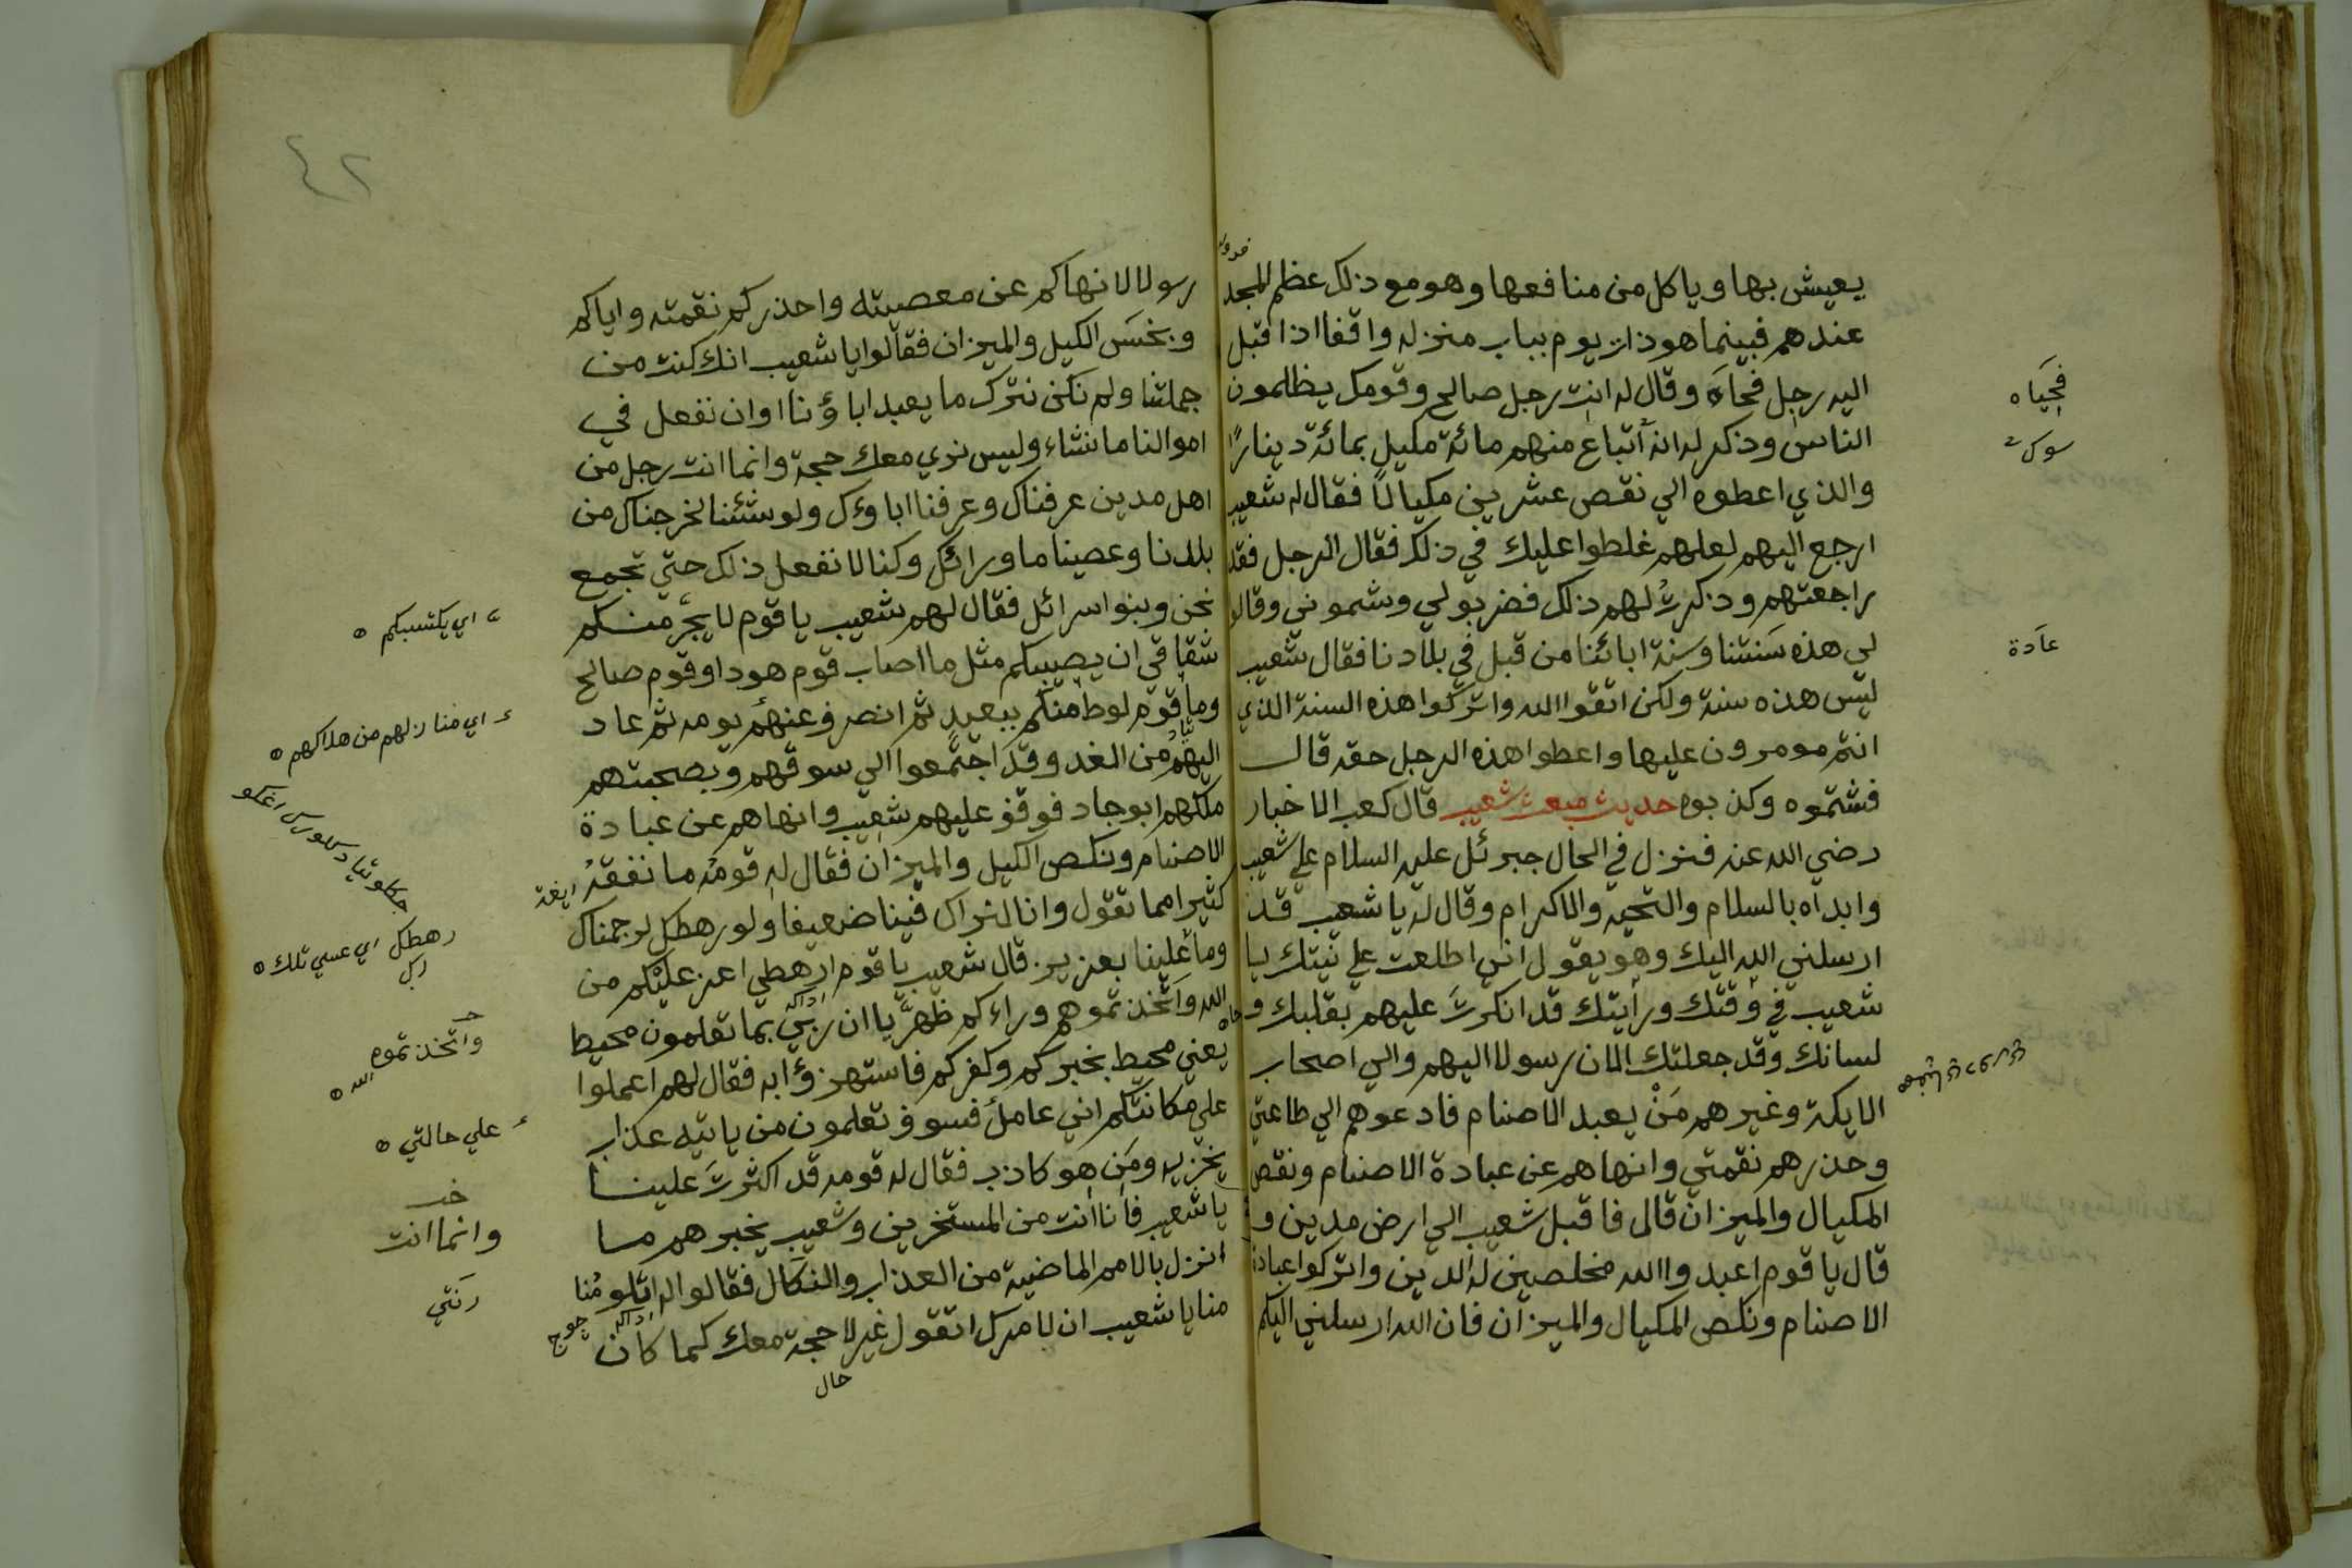 يعيش بها وياكل من منافعها وهو مع ذلك عظم المجد
عندهم فبينما هو ذات يوم بباب منزله واقفا اذا قبل
اليه رجل فحياه وقال له انت رجل صالح وقومك يظلمون
الناس وذكر له انه أتباع منهم مائة مكيل بمائة دينارًا
والذي اعطوه الي نقص عشرين مكيالاً فقال له شعيب
ارجع اليهم لعلهم غلطوا عليك في ذلك فقال الرجل فقد
راجعتهم وذكرتُ لهم ذلك فضربولي وشموني وقالو
لي هذه سَنتنا وسنة ابائنا من قبل في بلادنا فقال شعيب
ليس هذه سنة ولكن اتقوا الله واتركوا هذه السنة الذي
انتم مومرون عليها واعطوا هذه الرجل حقه قال
فشتموه وكذبوه حديث مبعث شعيب قال كعب الاخبار
رضي الله عنه فنزل في الحال جبرئل عليه السلام علي شعيب
وابداه بالسلام والتحيه والاكرام وقال له يا شعيب قد
ارسلني الله اليك وهو يقول اني اطلعت علي نيتك يا
شعيب في وقتك ورأيتك قد انكرتَ عليهم بقلبك و
لسانك وقد جعلتك الان رسولا اليهم والي اصحاب
الايكة وغيرهم مَنْ يعبد الاصنام فادعوهم الي طاعتي
وحذرهم نقمتي وانهاهم عن عبادة الاصنام ونقص
المكيال والميزان قال فاقبل شعيب الي ارض مدين و
قال يا قوم اعبدوا الله مخلصين له الدين واتركوا عبادة
الاصنام ونكص المكيال والميزان فان الله ارسلني اليكم
فحَيَاه
عادة
٤٢
رسولا لانهاكم عن معصيته واحذركم نقمته واياكم
وبخسَ الكيل والميزان فقالوا يا شعيب انك كنت من
جملتنا ولم نكن نترك ما يعبد اباؤنا اوان نفعل في
اموالنا ما نشاء وليس نري معك حجة وانما انت رجل من
اهل مدين عرفناك وعرفنا اباوءك ولو شئنا لخرجناك من
بلدنا وعصينا ما ورائك وكنا لا نفعل ذلك حتي تجمع
نحن وبنو اسرائل فقال لهم شعيب يا قوم لا يجرمنكم
شقاقي ان يصيبكم مثل ما اصاب قوم هود او قوم صالح
وما قوم لوط منكم ببعيد ثم انصرف عنهم يومه ثم عاد
اليهم من الغد وقد اجتمعوا الي سوقهم وبصحبتهم
ملكهم ابوجاد فوقف عليهم شعيب وانهاهم عن عبادة
الاصنام ونكص الكيل والميزان فقال له قومه ما نفقهُ
كثيرا مما تقول وانا لنراك فينا ضعيفا ولو رهطك لرجمناك
وما علينا بعزيز قال شعيب يا قوم ارهطي اعز عليكم من
الله واتخذتموهم وراءكم ظهريا ان ربي بما تعلمون محيط
يعني محيط بخبركم وكفركم فاستهزؤا به فقال لهم اعملوا
علي مكانتكم اني عامل فسوف تعلمون من ياتيه عذاب
يخزيه ومن هو كاذب فقال له قومه قد اكثرتَ علينا
يا شعيب فانا انت من المستخرين وشعيب يخبرهم مسا
انزل بالامم الماضية من العذاب والنكال فقالوا له
منا يا شعيب ان لا مرك اتقول غير لا حجة معك كما كان
حال
اي يكتسبكم
اي منازلهم من هلاكهم
رهطك اي عسي تلك
واتخذتموه
الله
علي حالتي
وانما انت